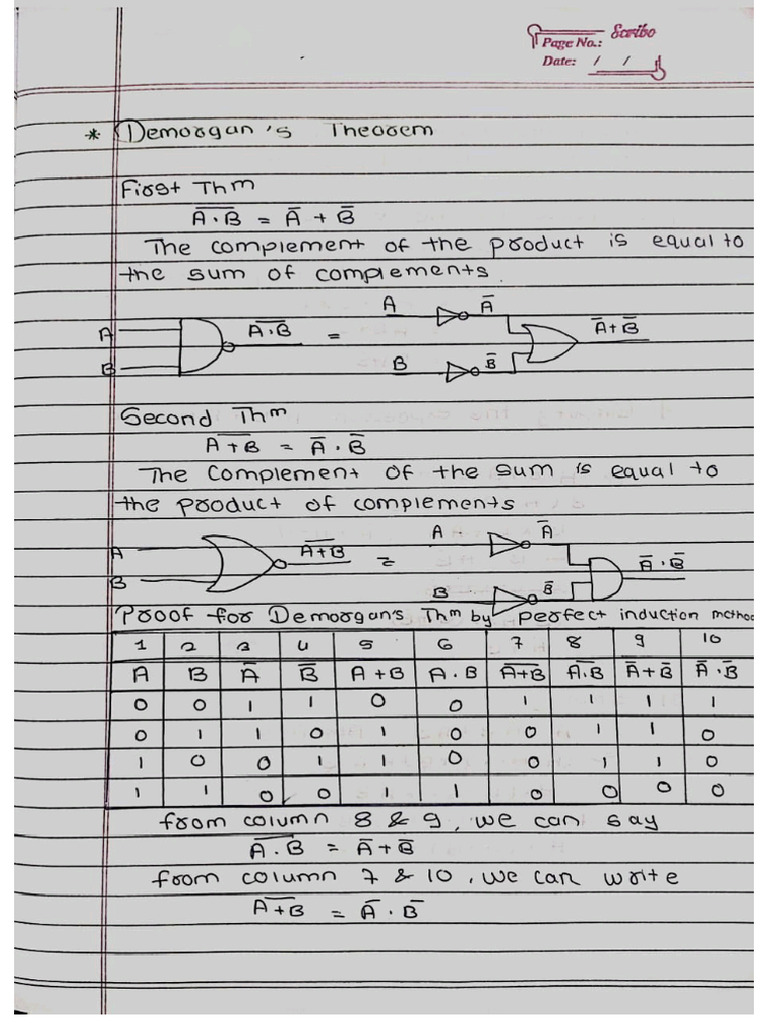 Scribo
Page No.:
Date: / /
* Demorgan's Theorem
First Thm
A̅·̅B̅ = A̅ + B̅
The complement of the product is equal to
the sum of complements
A B A̅·̅B̅ = A A̅ B B̅ A̅+B̅
Second Thm
A̅+̅B̅ = A̅ . B̅
The Complement of the sum is equal to
the product of complements
A B A̅+̅B̅ = A A̅ B B̅ A̅ . B̅
Proof for Demorgan's Thm by perfect induction method
1 2 3 4 5 6 7 8 9 10
A B A̅ B̅ A+B A.B A̅+̅B̅ A̅.̅B̅ A̅+B̅ A̅.B̅
0 0 1 1 0 0 1 1 1 1
0 1 1 0 1 0 0 1 1 0
1 0 0 1 1 0 0 1 1 0
1 1 0 0 1 1 0 0 0 0
from column 8 & 9, we can say
A̅.̅B̅ = A̅+B̅
from column 7 & 10, we can write
A̅+̅B̅ = A̅ . B̅